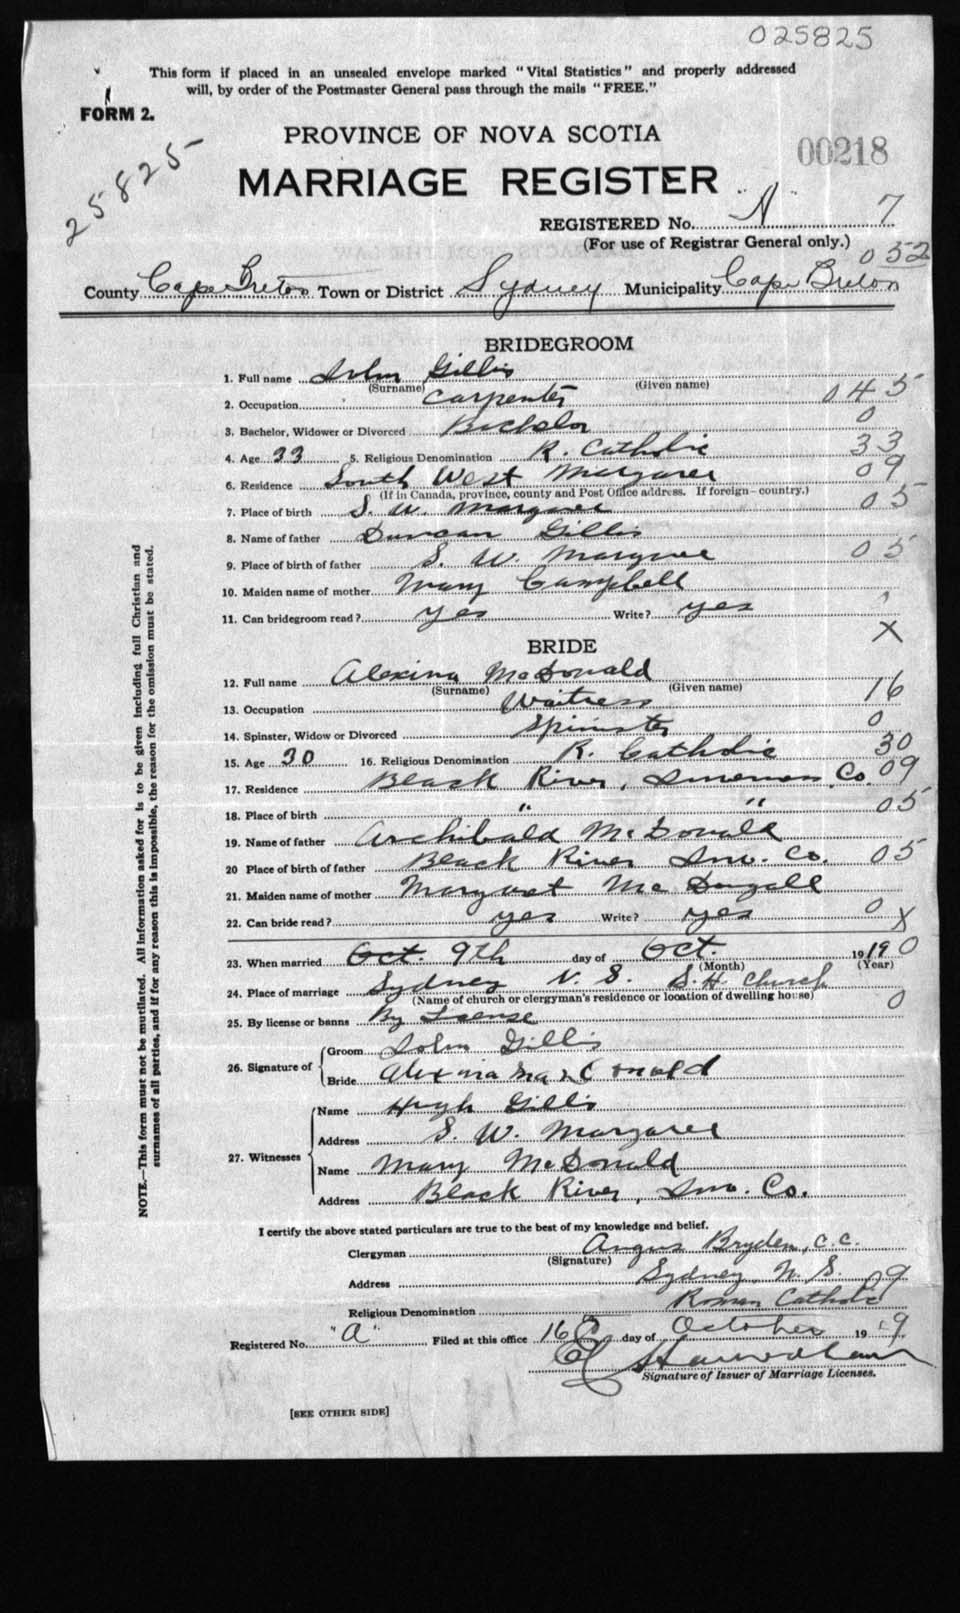 025825
This form if placed in an unsealed envelope marked "Vital Statistics" and properly addressed
will, by order of the Postmaster General pass through the mails "FREE."
FORM 2.
25825
PROVINCE OF NOVA SCOTIA
00218
MARRIAGE REGISTER
REGISTERED No. A 7
(For use of Registrar General only.)
052
County Cape Breton Town or District Sydney Municipality Cape Breton
BRIDEGROOM
1. Full name John Gillis
(Surname) (Given name)
2. Occupation Carpenter 045
3. Bachelor, Widower or Divorced Bachelor 0
4. Age 33 5. Religious Denomination R. Catholic 33
6. Residence South West Margaree 09
(If in Canada, province, county and Post Office address. If foreign-country.)
7. Place of birth S. W. Margaree 05
8. Name of father Duncan Gillis
9. Place of birth of father S. W. Margaree 05
10. Maiden name of mother Mary Campbell
11. Can bridegroom read? yes Write? yes 0
X
BRIDE
12. Full name Alexina McDonald
(Surname) (Given name)
13. Occupation Waitress 16
14. Spinster, Widow or Divorced Spinster 0
15. Age 30 16. Religious Denomination R. Catholic 30
17. Residence Black River, Inverness Co. 09
18. Place of birth " " 05
19. Name of father Archibald McDonald
20 Place of birth of father Black River Inv. Co. 05
21. Maiden name of mother Margaret McDougall
22. Can bride read? yes Write? yes 0
X
23. When married Oct. 9th day of Oct. 1919 0
(Month) (Year)
24. Place of marriage Sydney N. S. S. H. Church
(Name of church or clergyman's residence or location of dwelling house)
25. By license or banns By License 0
26. Signature of Groom John Gillis
Bride Alexina MacDonald
27. Witnesses Name Hugh Gillis
Address S. W. Margaree
Name Mary McDonald
Address Black River, Inv. Co.
I certify the above stated particulars are true to the best of my knowledge and belief.
Clergyman Angus Bryden, c.c.
(Signature)
Address Sydney, N. S. 09
Religious Denomination Roman Catholic
Registered No. "A" Filed at this office 16 day of October 1919
Signature of Issuer of Marriage Licenses.
[SEE OTHER SIDE]
NOTE.—This form must not be mutilated. All information asked for is to be given including full Christian and
surnames of all parties, and if for any reason this is impossible, the reason for the omission must be stated.